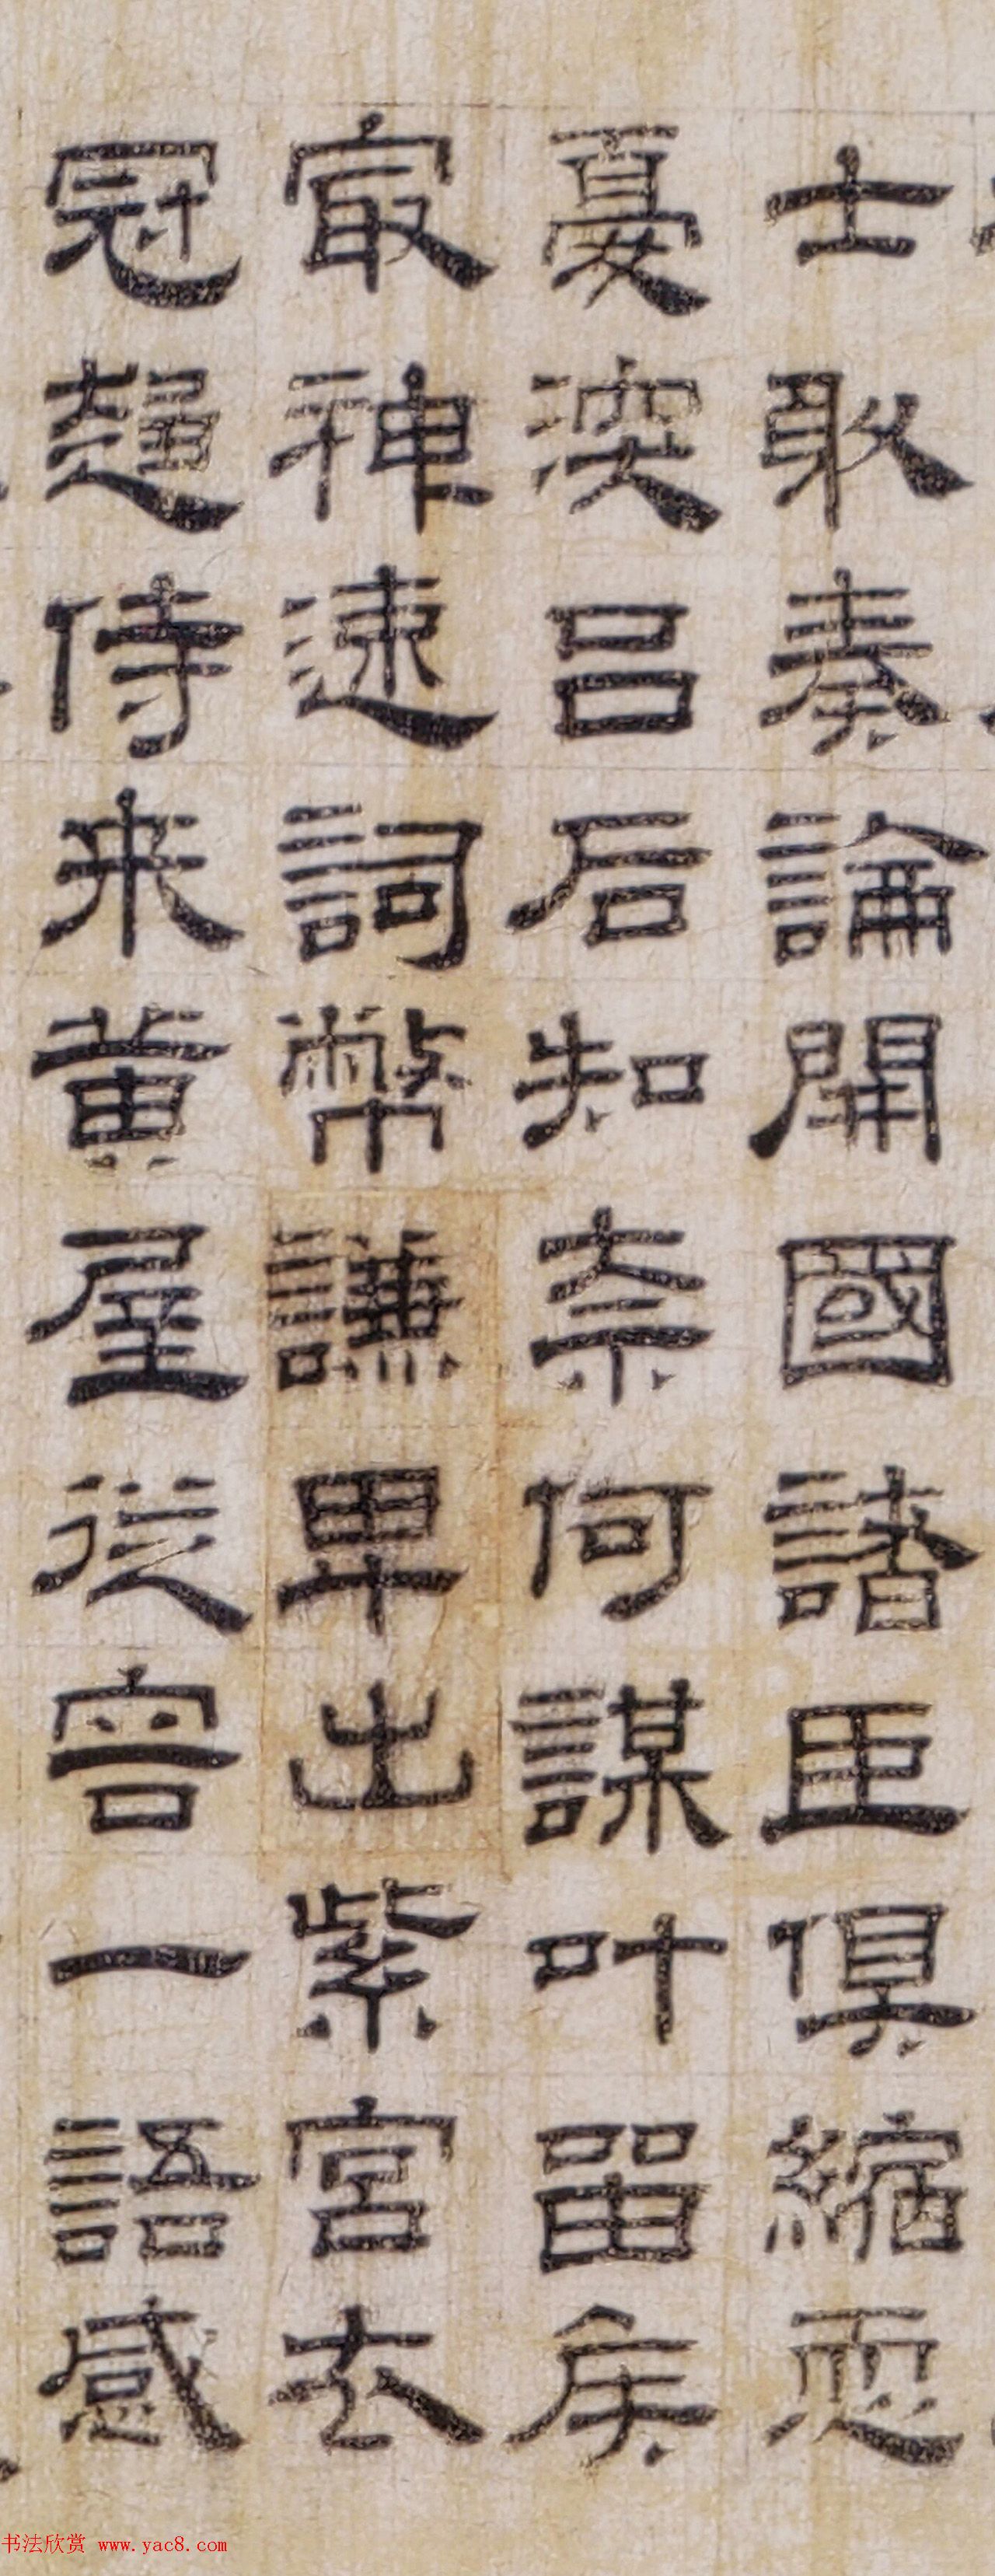 士敢奏論開國諸臣俱縮恧
憂深呂后知柰何謀叶留矦
冣神速詞幣謙卑出紫宮去
冠趨侍来黄屋従容一語感
书法欣赏 www.yac8.com